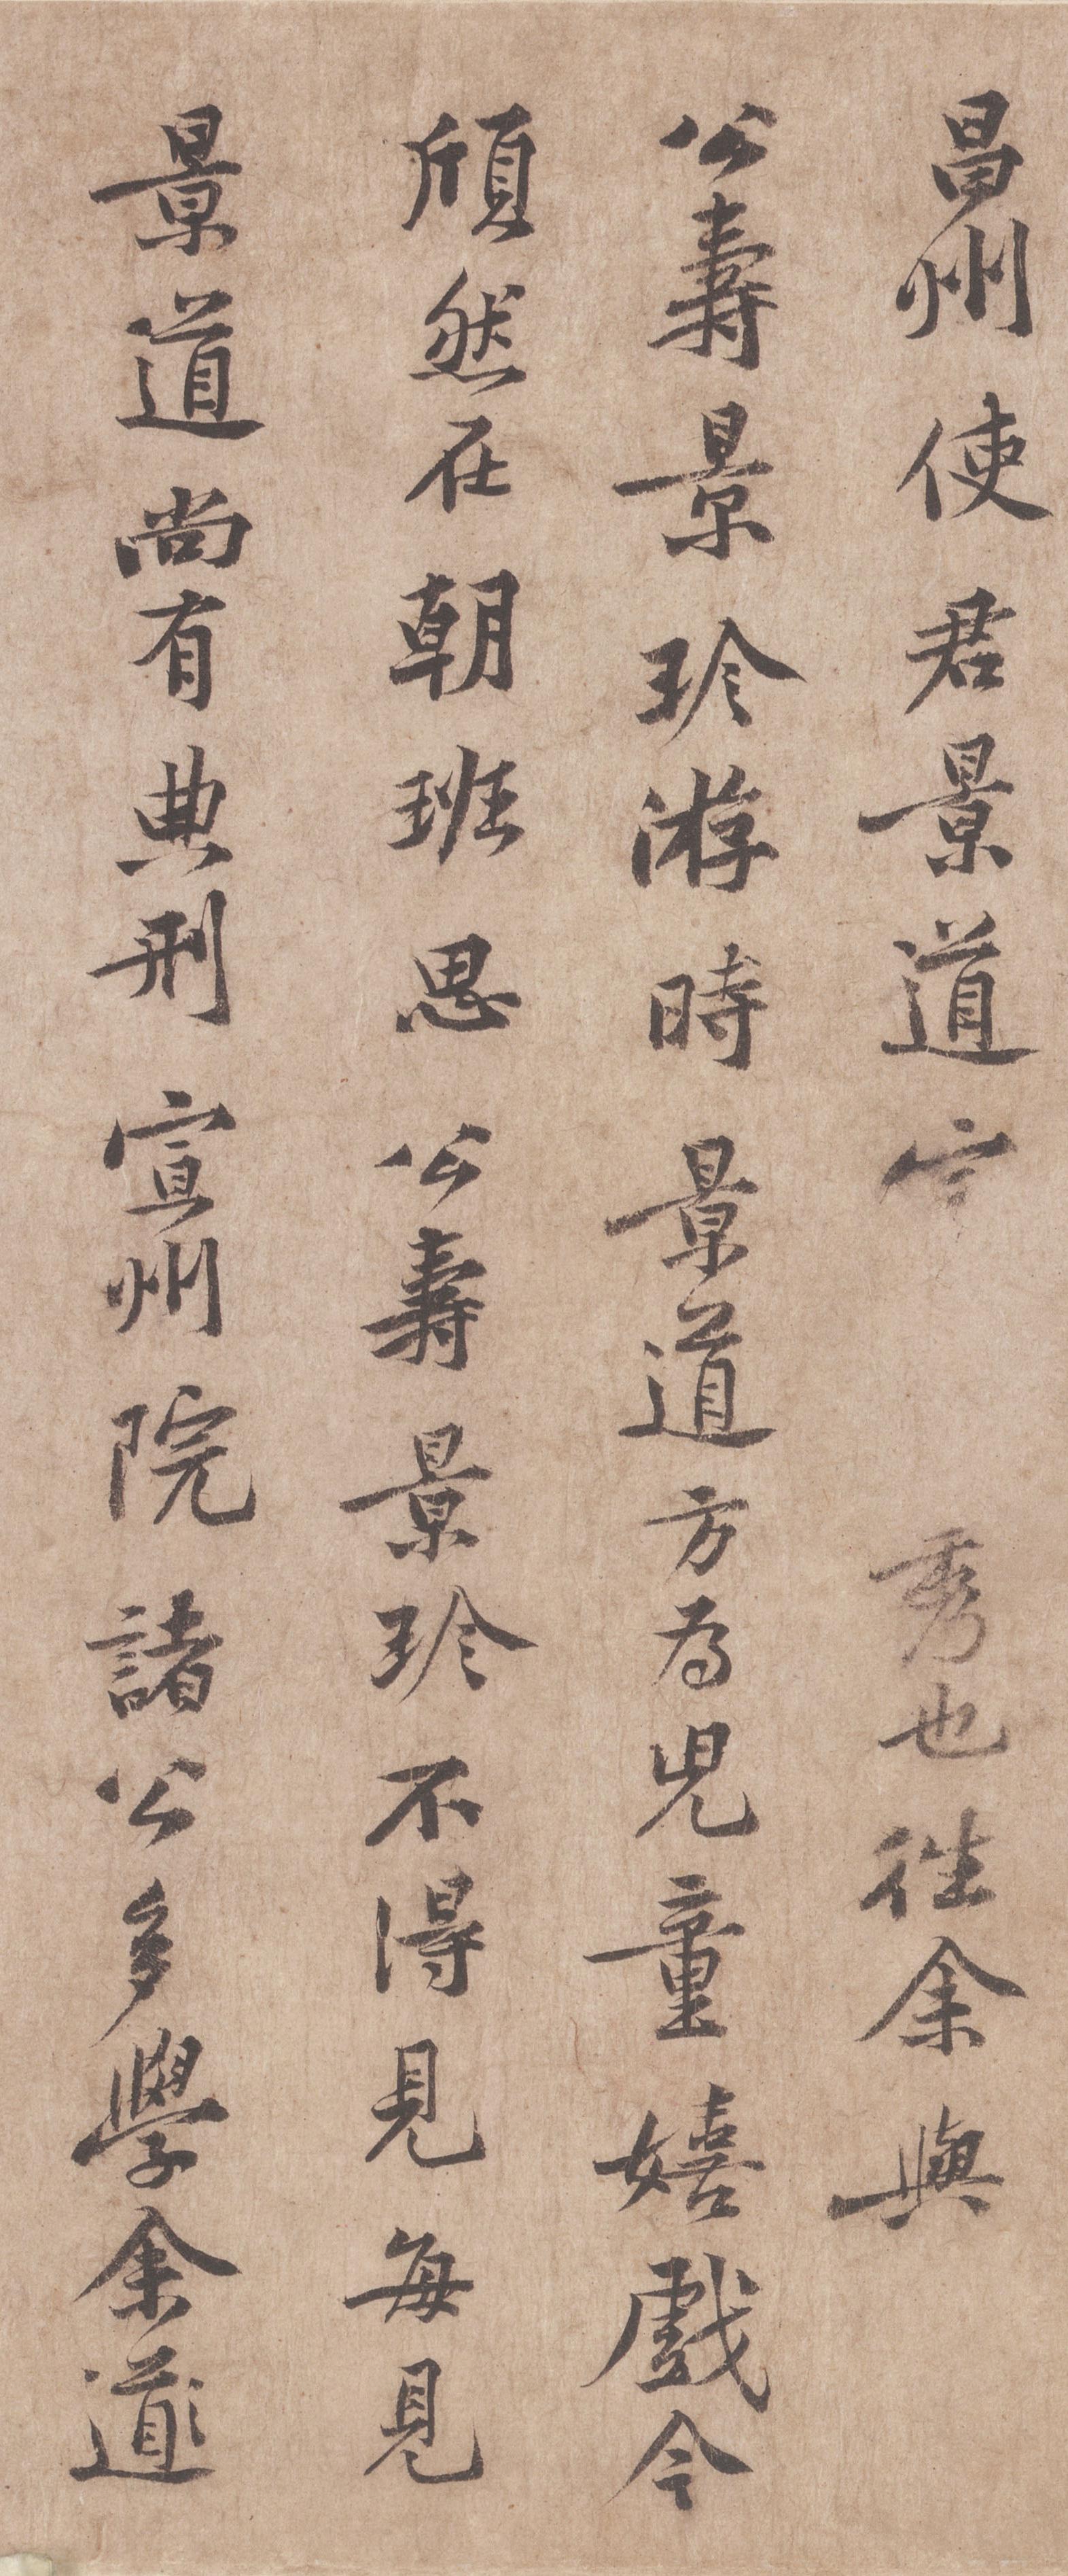 昌州使君景道宗秀也往余與
公壽景珍游時景道方為兒童嬉戲今
頎然在朝班思公壽景珍不得見每見
景道尚有典刑宣州院諸公多學余書